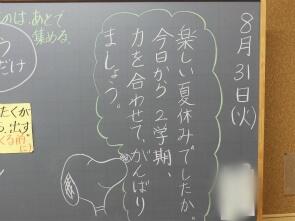 8月31日(火)
楽しい夏休みでしたか。
今日から2学期、
力を合わせて、がんばり
ましょう。
のは、あとで
集める。
う
だけ
たくか
う、出す
くる前
に)